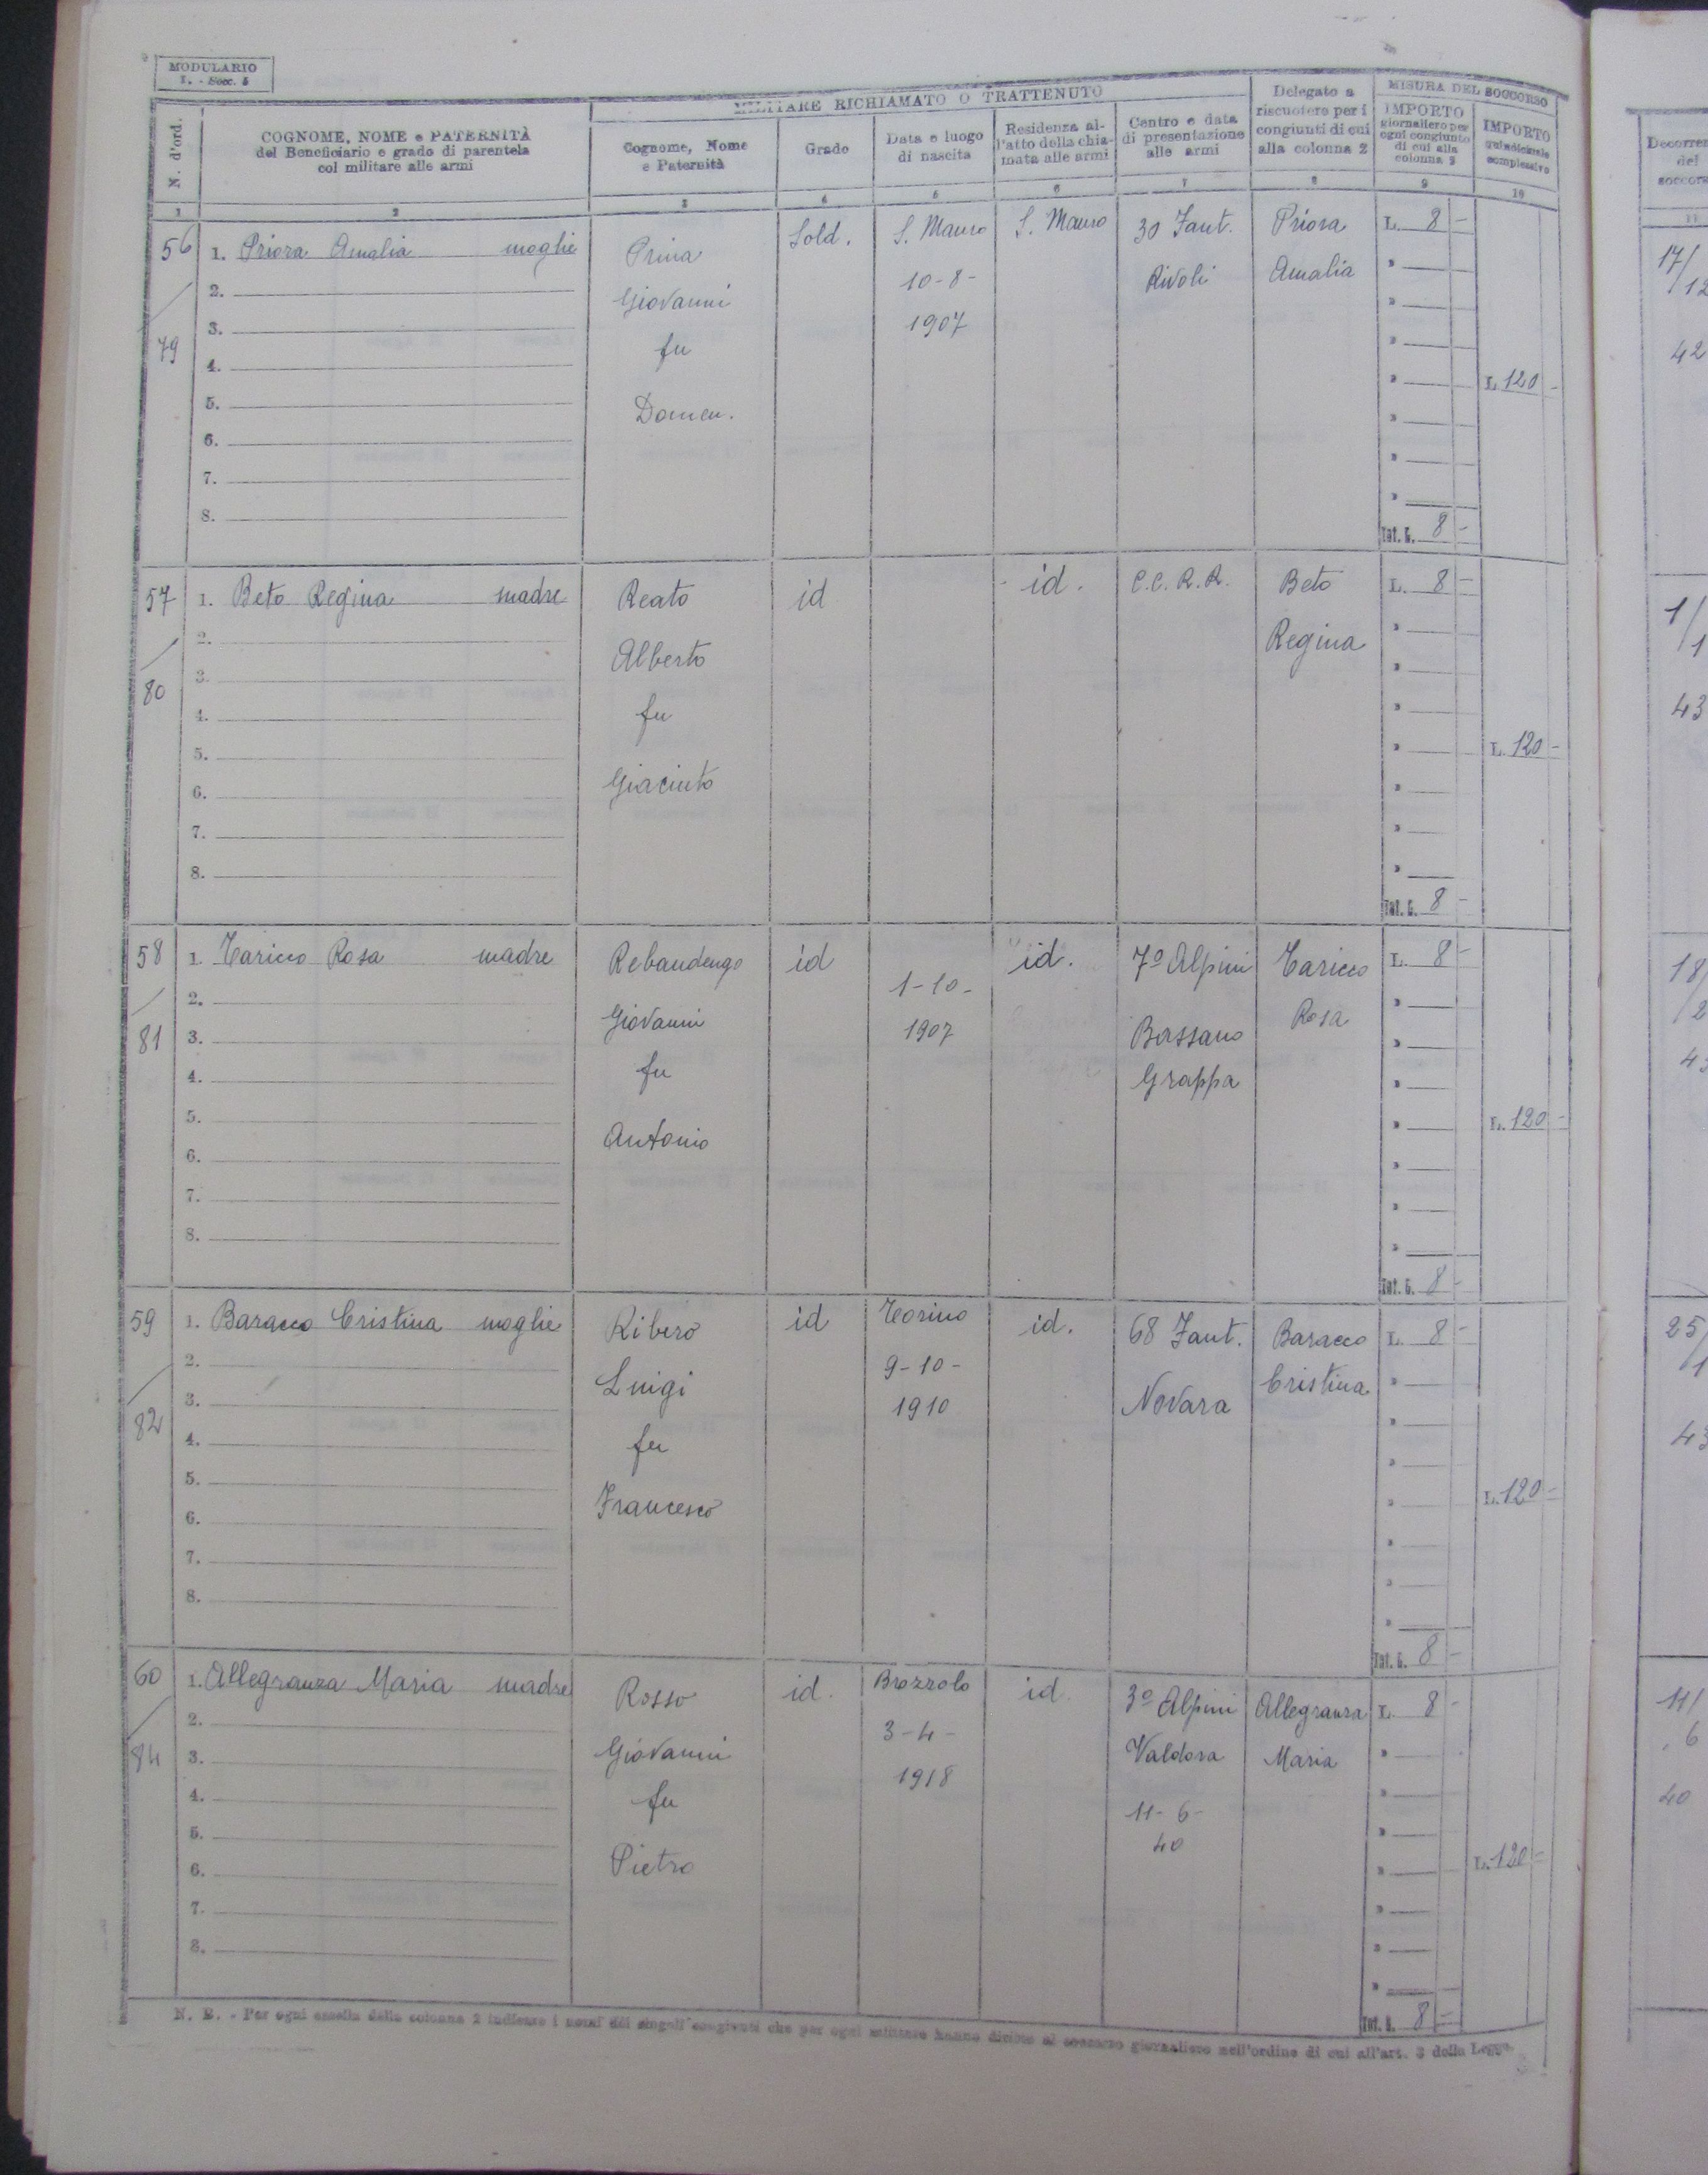 MODULARIO
I. - Socc. 5
N. d'ord.
COGNOME, NOME e PATERNITÀ
del Beneficiario e grado di parentela
col militare alle armi
MILITARE RICHIAMATO O TRATTENUTO
Cognome, Nome
e Paternità
Grado
Data e luogo
di nascita
Residenza al-
l'atto della chia-
mata alle armi
Centro e data
di presentazione
alle armi
Delegato a
riscuotere per i
congiunti di cui
alla colonna 2
MISURA DEL SOCCORSO
IMPORTO
giornaliero per
ogni congiunto
di cui alla
colonna 2
IMPORTO
quindicinale
complessivo
1 2 3 4 5 6 7 8 9 10
56
79
1. Priora Amalia moglie
2.
3.
4.
5.
6.
7.
8.
Prina
Giovanni
fu
Domen.
Sold.
S. Mauro
10-8-
1907
S. Mauro
30 Fant.
Rivoli
Priora
Amalia
L. 8 -
Tot. L. 8 -
L. 120 -
57
80
1. Beto Regina madre
2.
3.
4.
5.
6.
7.
8.
Reato
Alberto
fu
Giacinto
id
id.
C.C. R.R.
Beto
Regina
L. 8 -
Tot. L. 8 -
L. 120 -
58
81
1. Taricco Rosa madre
2.
3.
4.
5.
6.
7.
8.
Rebaudengo
Giovanni
fu
Antonio
id
1-10-
1907
id.
7º Alpini
Bassano
Grappa
Taricco
Rosa
L. 8 -
Tot. L. 8 -
L. 120 -
59
82
1. Baracco Cristina moglie
2.
3.
4.
5.
6.
7.
8.
Ribero
Luigi
fu
Francesco
id
Torino
9-10-
1910
id.
68 Fant.
Novara
Baracco
Cristina
L. 8 -
Tot. L. 8 -
L. 120 -
60
84
1. Allegranza Maria madre
2.
3.
4.
5.
6.
7.
8.
Rosso
Giovanni
fu
Pietro
id.
Brozzolo
3-4-
1918
id.
3º Alpini
Valdora
11-6-
40
Allegranza
Maria
L. 8 -
Tot. L. 8 -
L. 120 -
N. B. - Per ogni casella della colonna 2 indicare i nomi dei singoli congiunti che per ogni militare hanno diritto al soccorso giornaliero nell'ordine di cui all'art. 3 della Legge.
17/
12
42
1/
1
43
18/
2
43
25/
1
43
11/
6
40